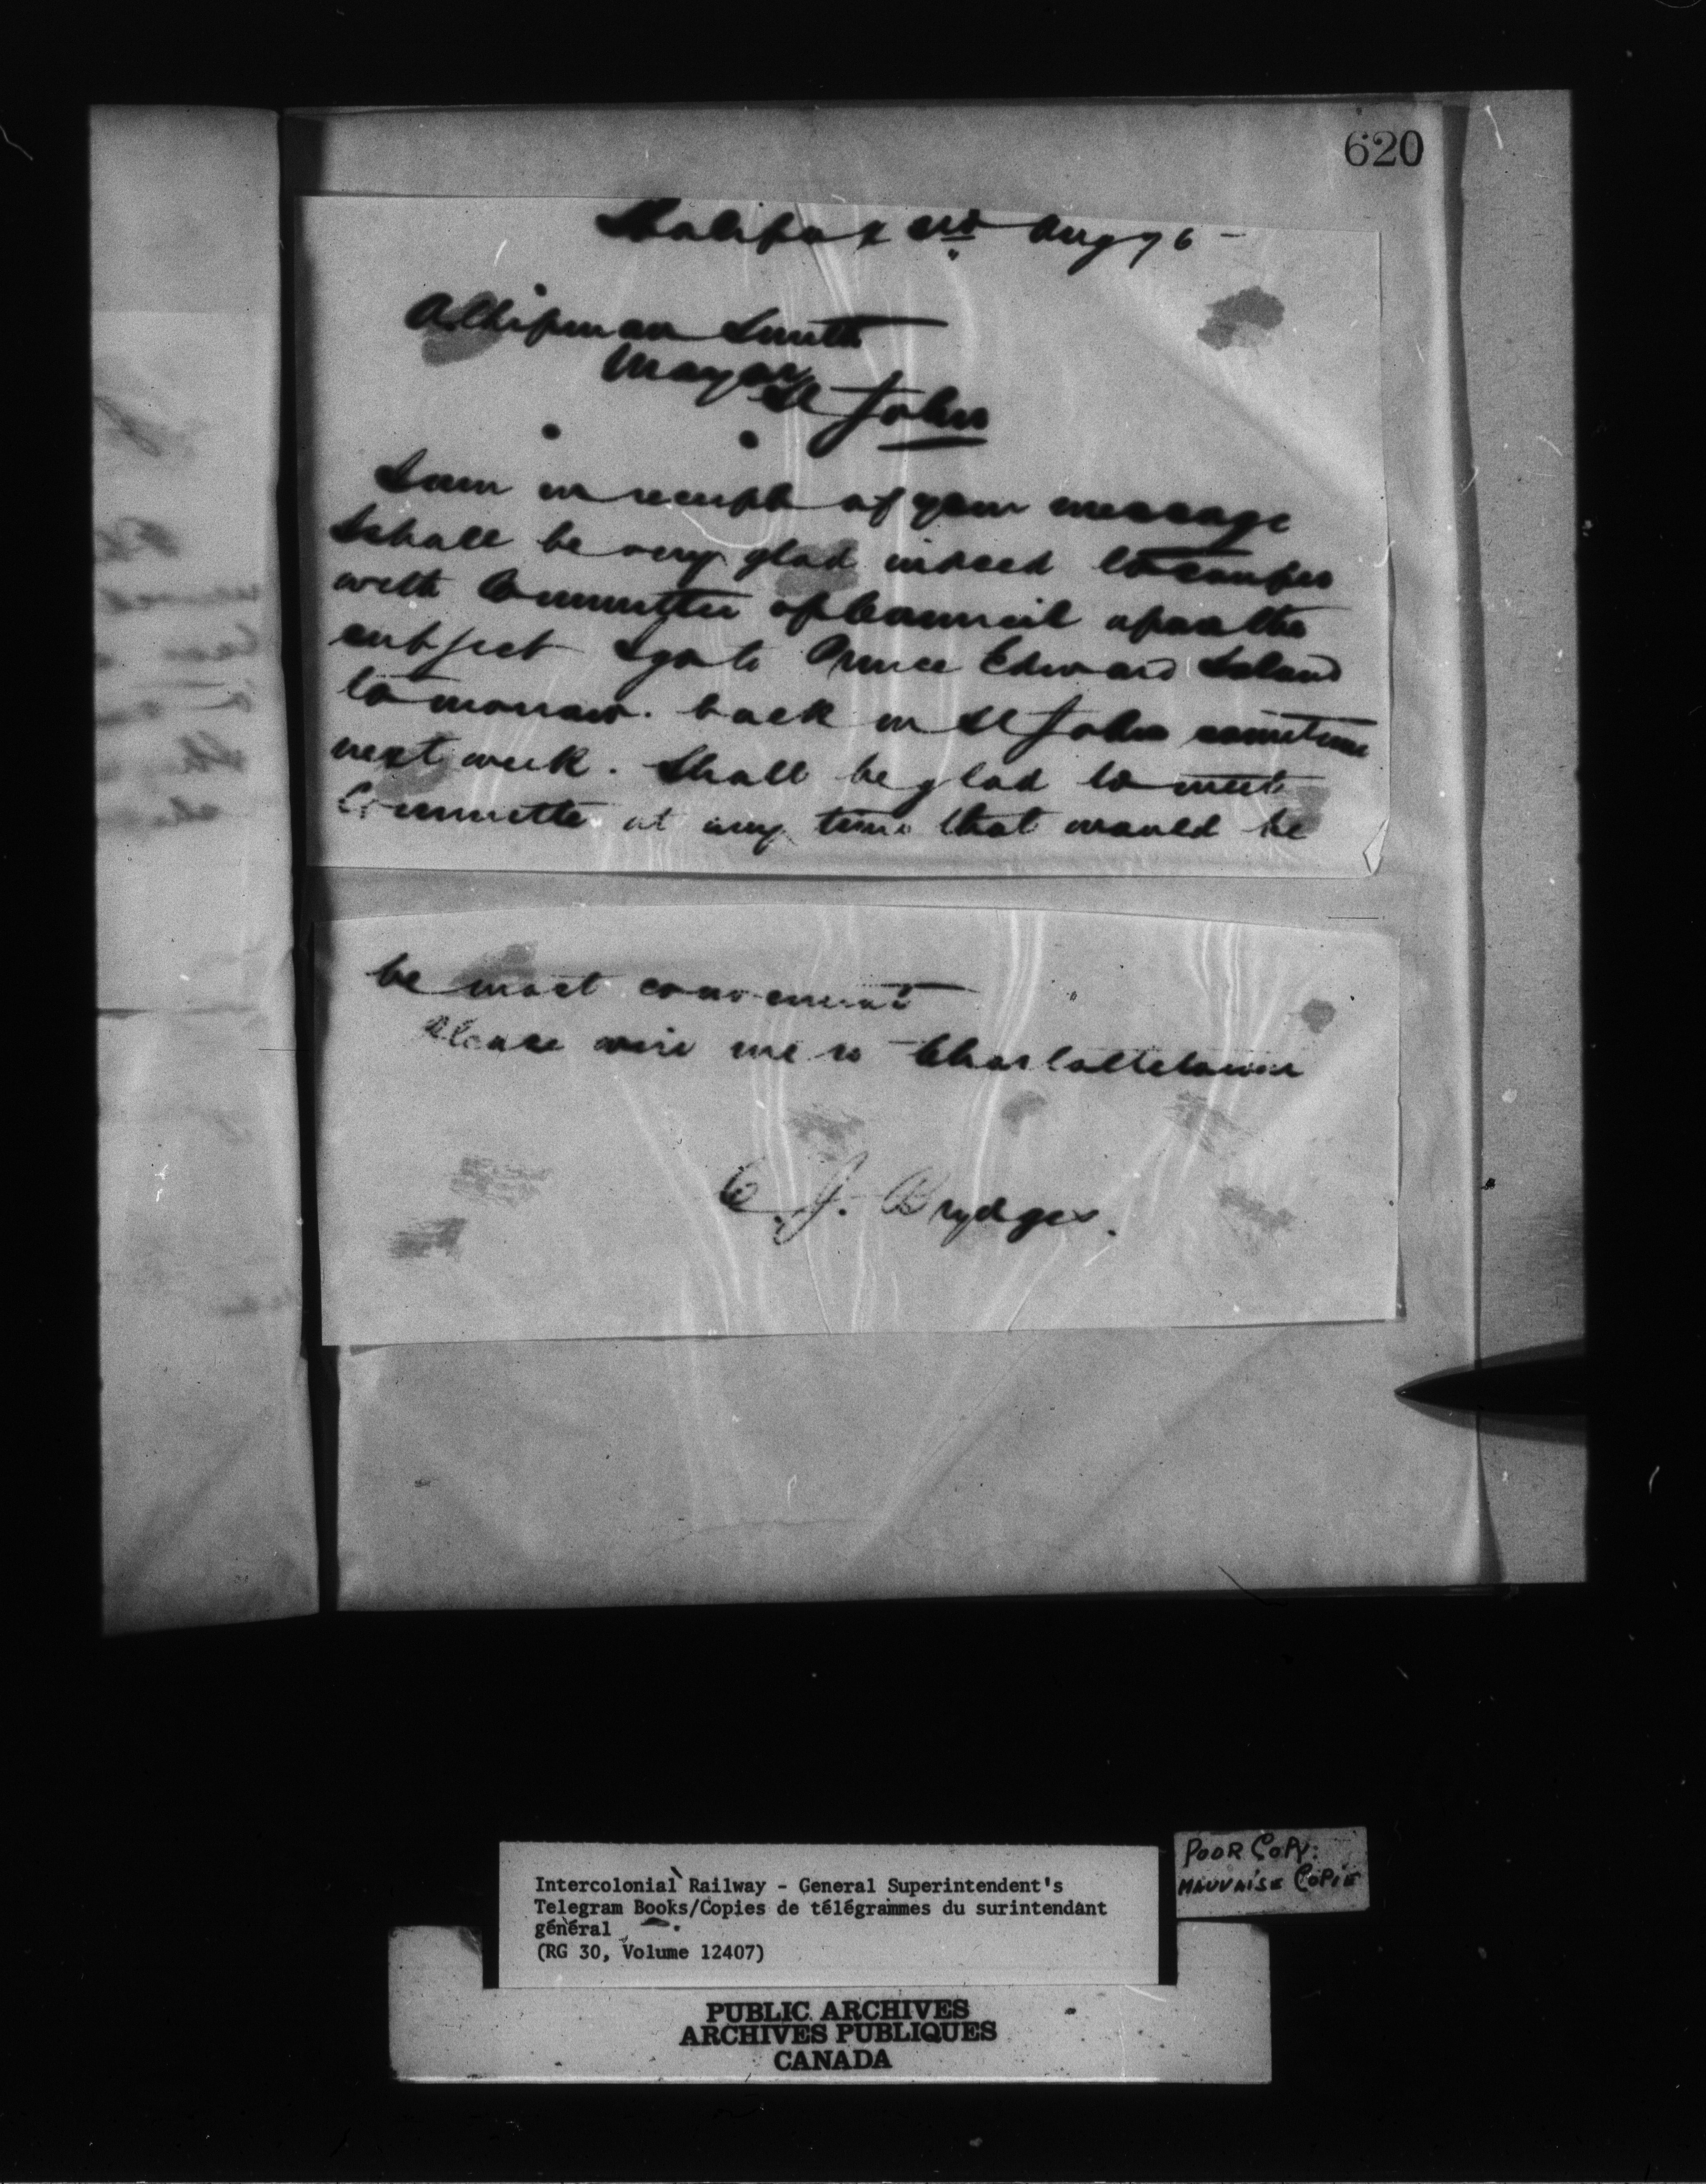 620
Halifax Aug 76 -
A Chipman Smith
Mayor
St John
I am in receipt of your message
I shall be very glad indeed to confer
with Committee of Council upon the
subject I go to Prince Edward Island
tomorrow. back in St John sometime
next week. Shall be glad to meet
Committee at any time that would be
be most convenient
Please wire me to Charlottetown
C. J. Brydges.
POOR COPY:
MAUVAISE COPIE
Intercolonial Railway - General Superintendent's
Telegram Books/Copies de télégrammes du surintendant
général
(RG 30, Volume 12407)
PUBLIC ARCHIVES
ARCHIVES PUBLIQUES
CANADA